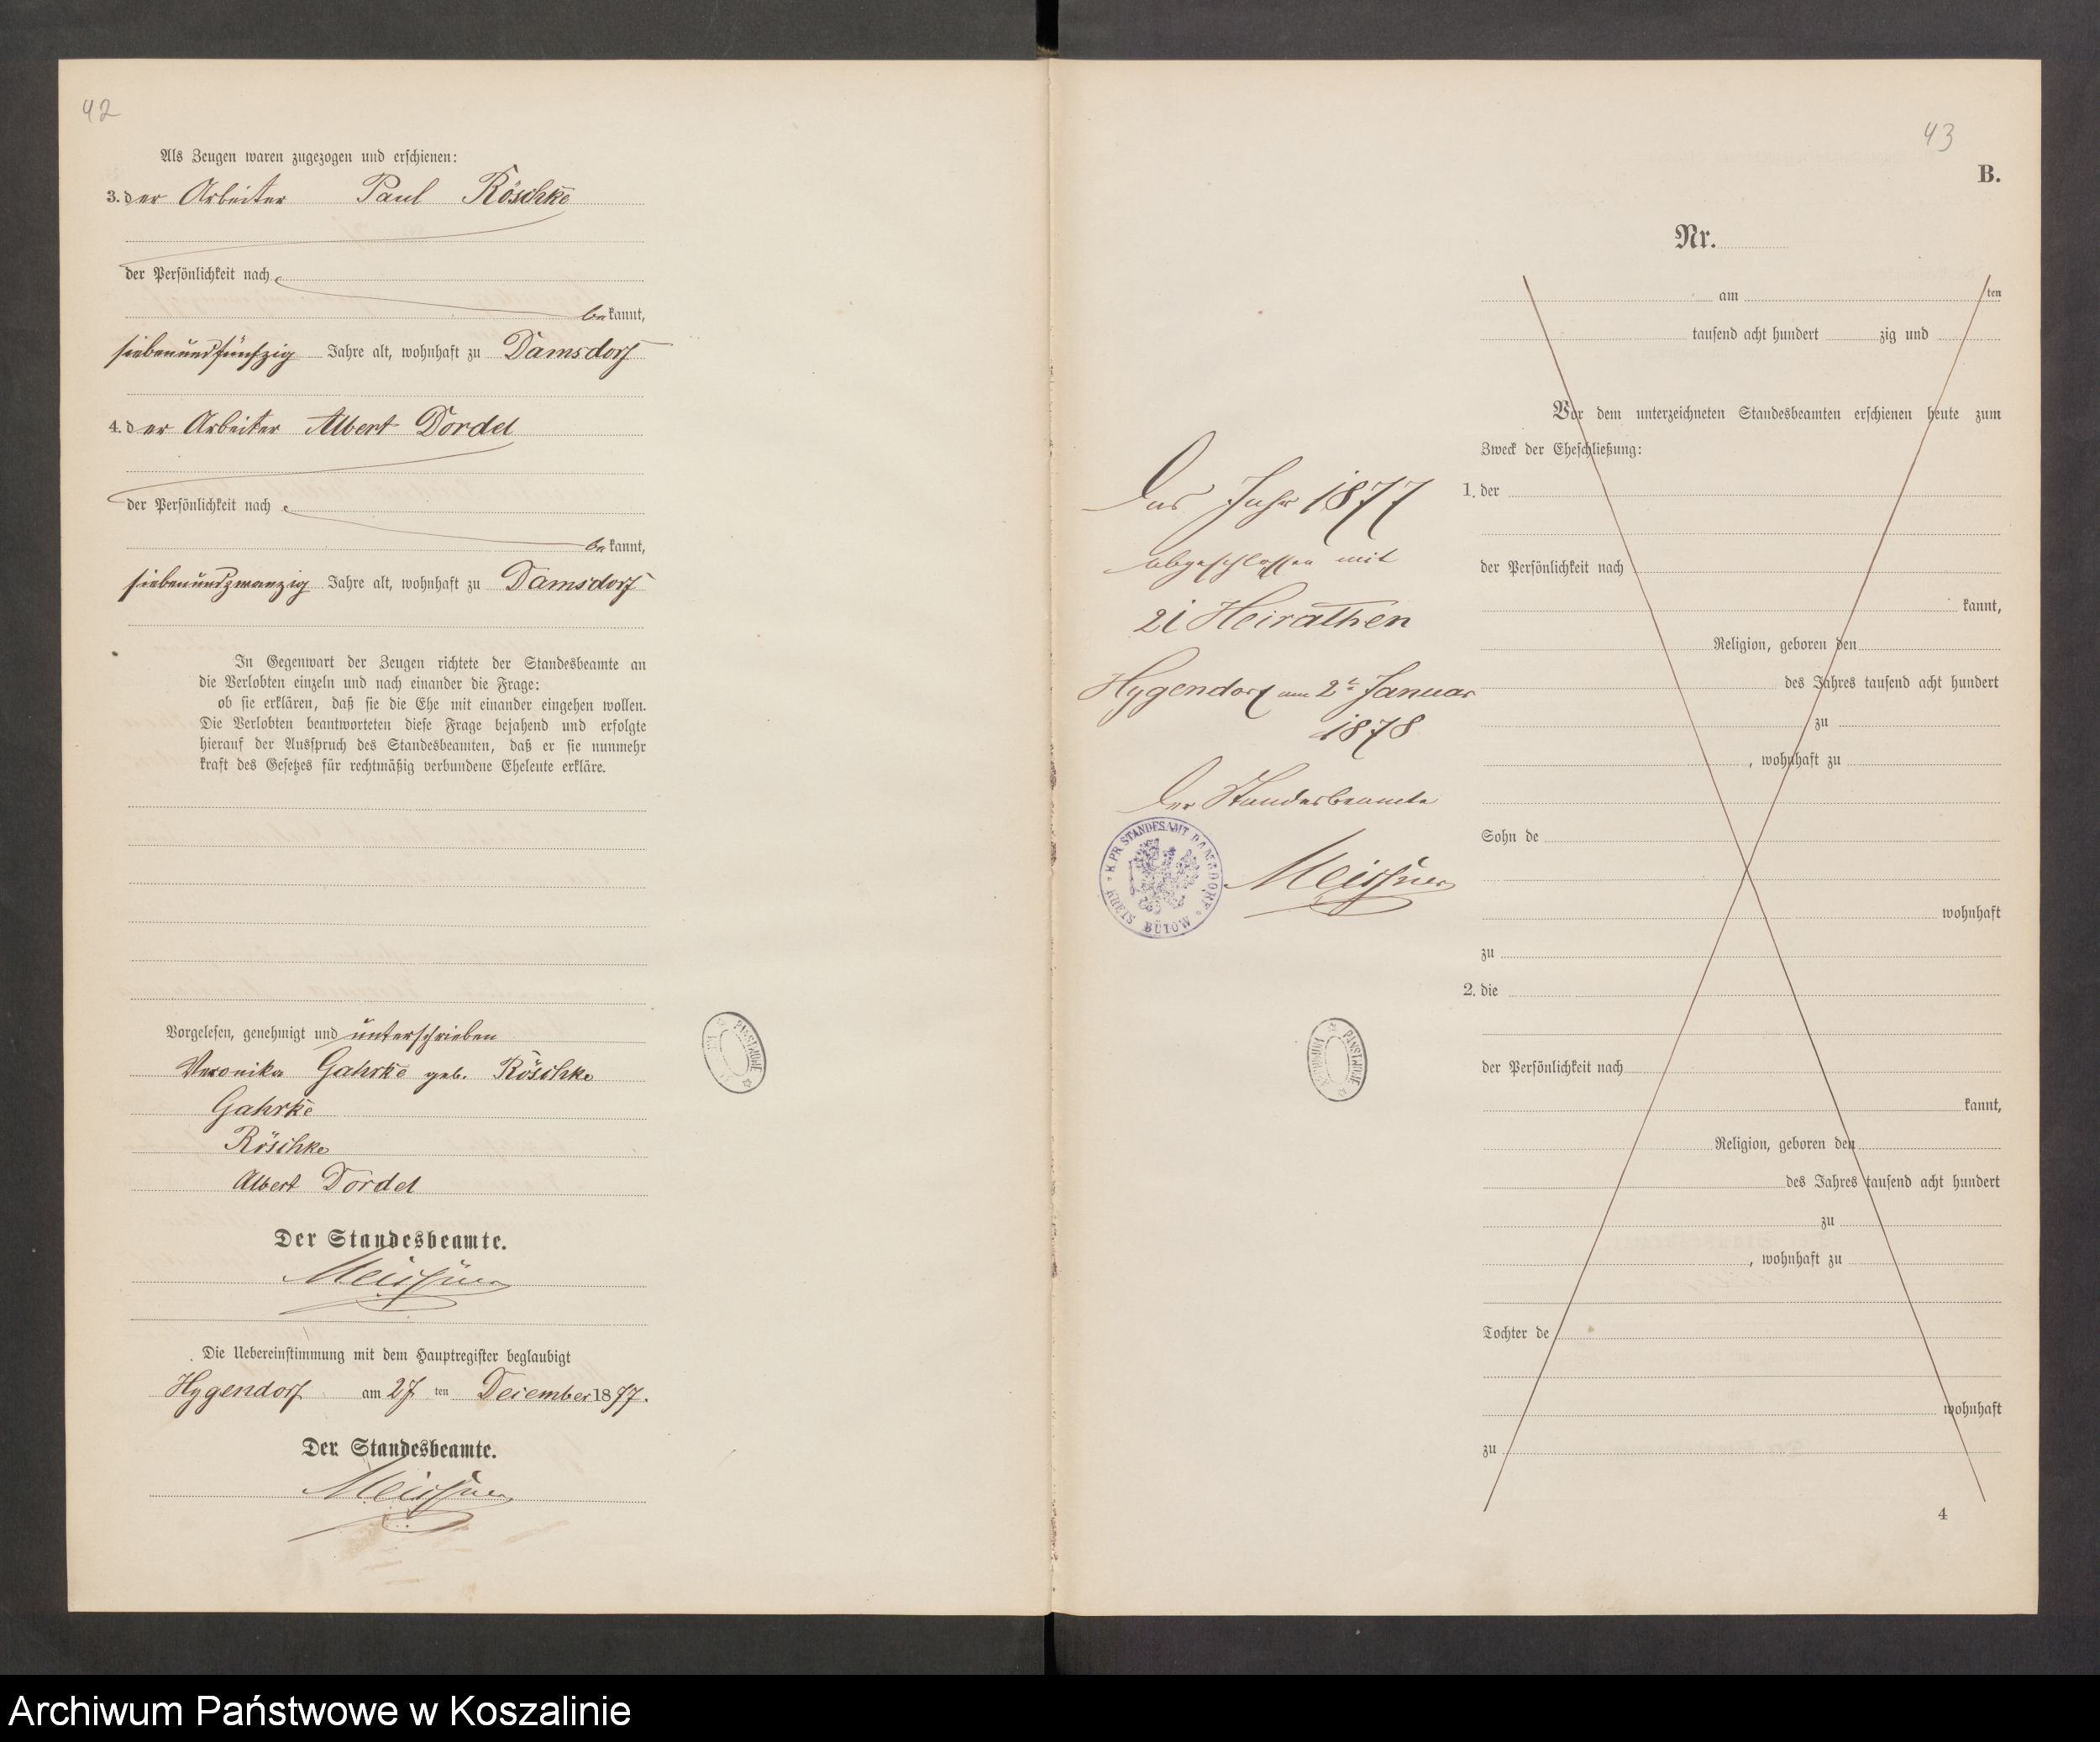 42
Als Zeugen waren zugezogen und erschienen:
3. der Arbeiter Paul Röschke
der Persönlichkeit nach
bekannt,
siebenundfünfzig Jahre alt, wohnhaft zu Damsdorf
4. der Arbeiter Albert Dordel
der Persönlichkeit nach
bekannt,
siebenundzwanzig Jahre alt, wohnhaft zu Damsdorf
In Gegenwart der Zeugen richtete der Standesbeamte an
die Verlobten einzeln und nach einander die Frage:
ob sie erklären, daß sie die Ehe mit einander eingehen wollen.
Die Verlobten beantworteten diese Frage bejahend und erfolgte
hierauf der Ausspruch des Standesbeamten, daß er sie nunmehr
kraft des Gesetzes für rechtmäßig verbundene Eheleute erkläre.
Vorgelesen, genehmigt und unterschrieben
Veronika Gahrke geb. Röschke
Gahrke
Röschke
Albert Dordel
Der Standesbeamte.
Meissner
Die Uebereinstimmung mit dem Hauptregister beglaubigt
Hygendorf am 27 ten December 1877.
Der Standesbeamte.
Meissner
PAŃSTWOWE
43
B.
Nr.
am ten
tausend acht hundert zig und
Vor dem unterzeichneten Standesbeamten erschienen heute zum
Zweck der Eheschließung:
1. der
der Persönlichkeit nach
kannt,
Religion, geboren den
des Jahres tausend acht hundert
zu
, wohnhaft zu
Sohn de
wohnhaft
zu
2. die
der Persönlichkeit nach
kannt,
Religion, geboren den
des Jahres tausend acht hundert
zu
, wohnhaft zu
Tochter de
wohnhaft
zu
4
Das Jahr 1877
abgeschlossen mit
21 Heirathen
Hygendorf am 2t Januar
1878
Der Standesbeamte
Meissner
K. PR. STANDESAMT DAMSDORF
KREIS BÜTOW
ARCHIWUM PAŃSTWOWE
Archiwum Państwowe w Koszalinie